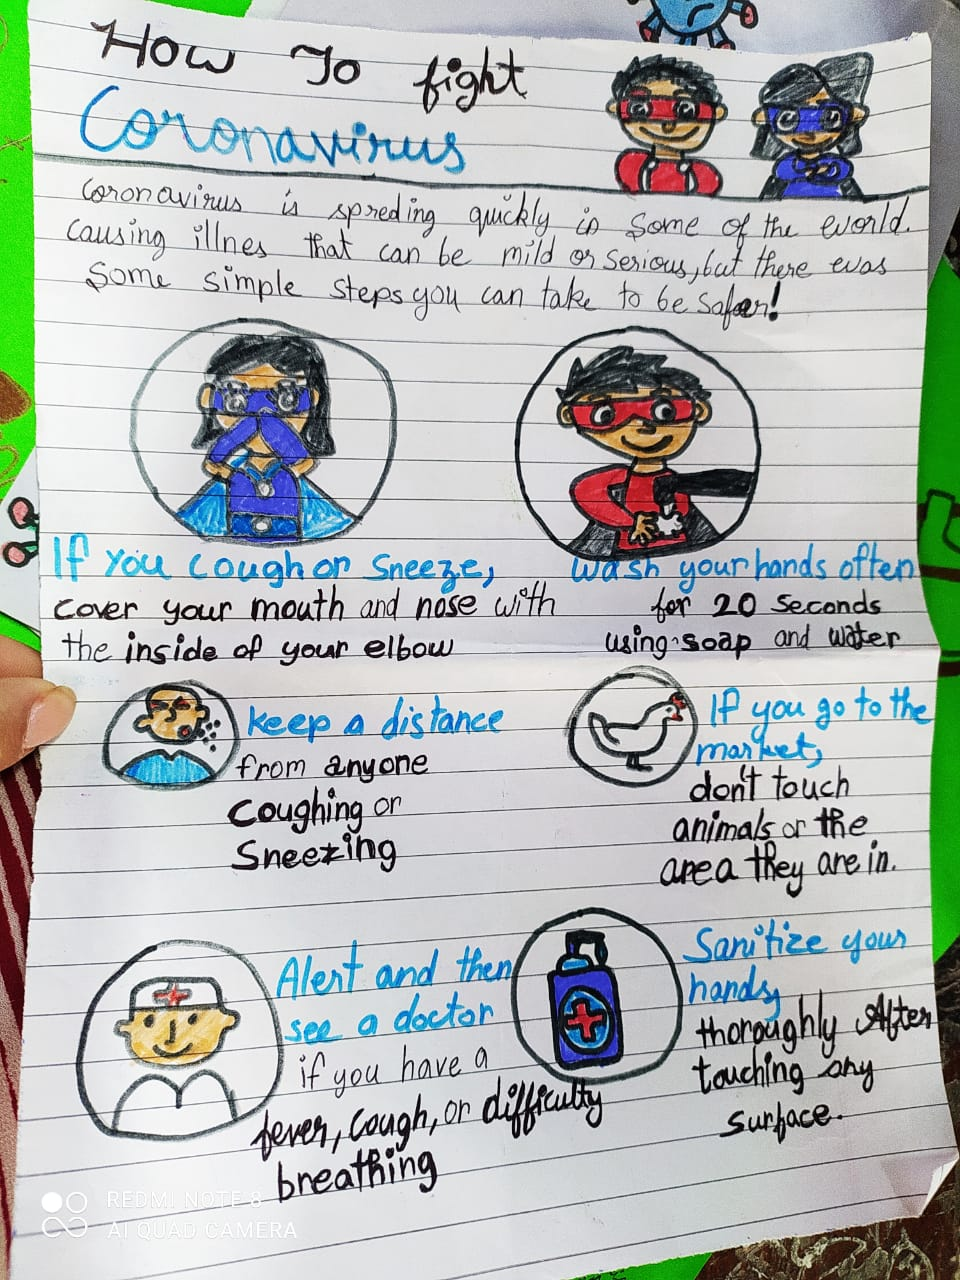 How To fight
Coronavirus
Coronavirus is spreding quickly in some of the world.
causing illnes that can be mild or serious, but there was
Some simple steps you can take to be safer!
If you cough or Sneeze,
cover your mouth and nose with
the inside of your elbow
Wash your hands often
for 20 seconds
using soap and water
keep a distance
from anyone
Coughing or
Sneezing
If you go to the
market,
don't touch
animals or the
area they are in.
Alert and then
see a doctor
if you have a
fever, cough, or difficulty
breathing
Sanitize your
hands,
thoroughly After
touching any
surface.
REDMI NOTE 8
AI QUAD CAMERA